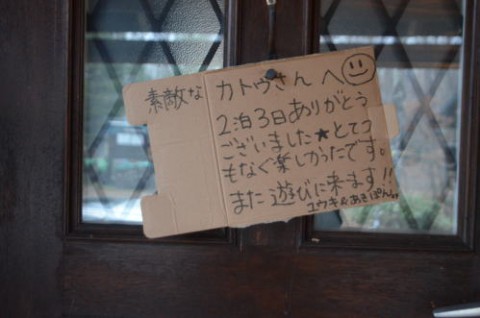 素敵な カトウさんへ
2泊3日ありがとう
ございました★とてつ
もなく楽しかったです。
また遊びに来ます!!
ユウキ&あきぽん